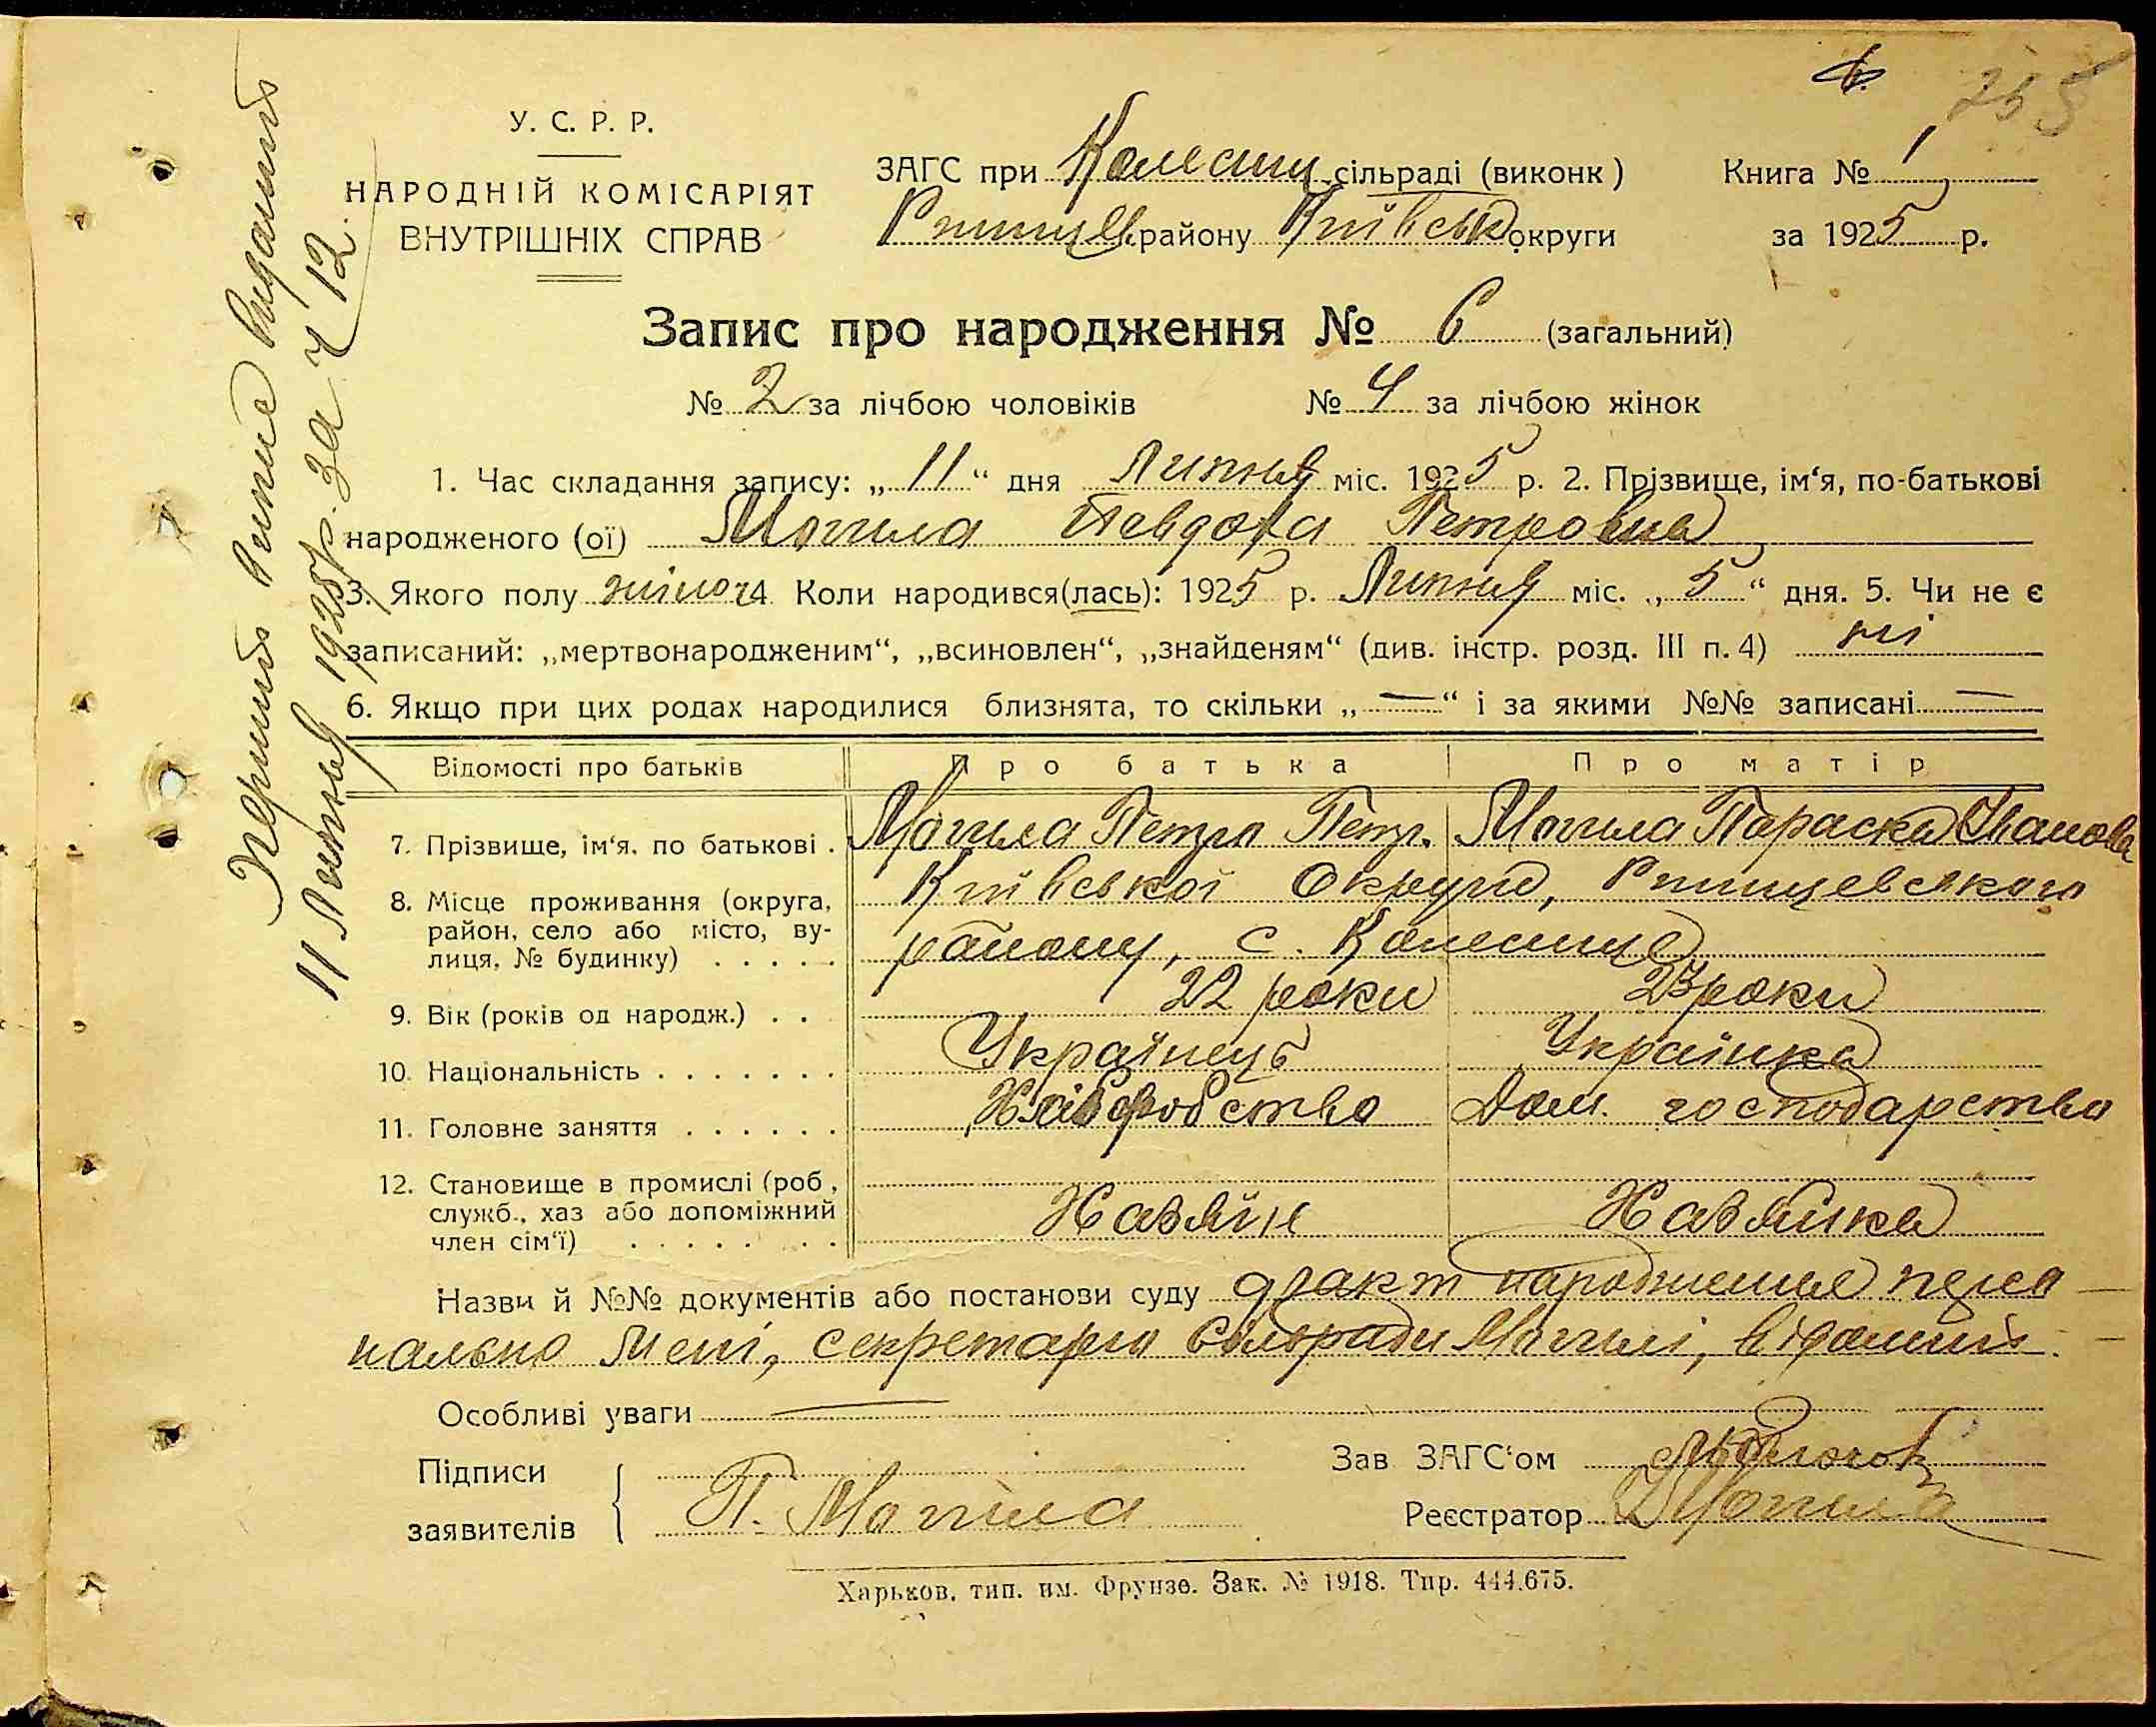 У. С. Р. Р.
НАРОДНІЙ КОМІСАРІЯТ
ВНУТРІШНІХ СПРАВ
ЗАГС при Калесищ. сільраді (виконк)
Ржищев. району Київськ округи
Книга № 1
за 1925 р.
Запис про народження № 6 (загальний)
№ 2 за лічбою чоловіків № 4 за лічбою жінок
1. Час складання запису: „11“ дня Липня міс. 1925 р. 2. Прізвище, ім‘я, по-батькові
народженого (ої) Могила Явдоха Петровна
3. Якого полу жіноч 4. Коли народився(лась): 1925 р. Липня міс. „5“ дня. 5. Чи не є
записаний: „мертвонародженим“, „всиновлен“, „знайденям“ (див. інстр. розд. III п. 4) ні
6. Якщо при цих родах народилися близнята, то скільки „—“ і за якими №№ записані —
Відомості про батьків Про батька Про матір
7. Прізвище, ім‘я, по батькові . Могила Петро Петр. Могила Параска Іванова
8. Місце проживання (округа, Київської Округи, Ржищевського
район, село або місто, ву-
лиця, № будинку) . . . . . району, с. Калесище
9. Вік (років од народж.) . . 22 роки 23 роки
10. Національність . . . . . . . Українець Українка
11. Головне заняття . . . . . . Хліборобство Дом. господарство
12. Становище в промислі (роб.,
служб., хаз або допоміжний
член сім‘ї) . . . . . . . Хазяїн Хазяйка
Назви й №№ документів або постанови суду факт народження персо-
нально мені, секретарю Сільради Могилі, відомий. —
Особливі уваги —
Підписи
заявителів П. Могила
Зав ЗАГС‘ом
Реєстратор Могила
Харьков, тип. им. Фрунзе. Зак. № 1918. Тир. 444.675.
Перший витяг виданий
11 Липня 1925 р. за ч 12